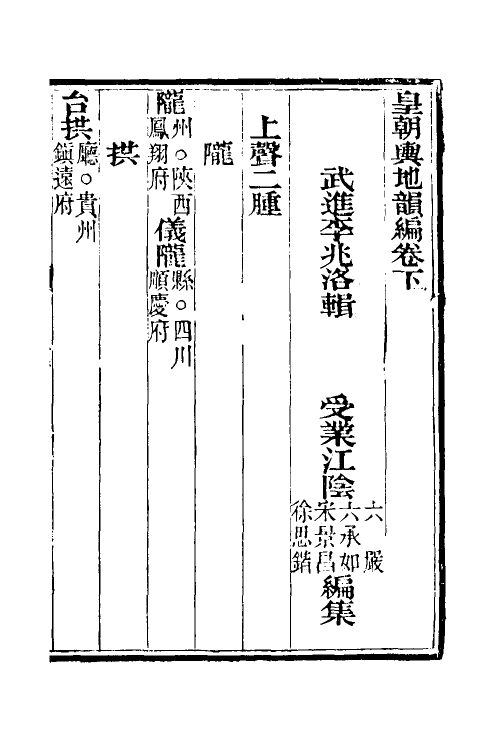 皇朝輿地韻編卷下
武進李兆洛輯　受業江陰六嚴六承如宋景昌徐思鍇編集
上聲二腫
隴
隴州○陝西鳳翔府儀隴縣○四川順慶府
拱
台拱廳○貴州鎮遠府